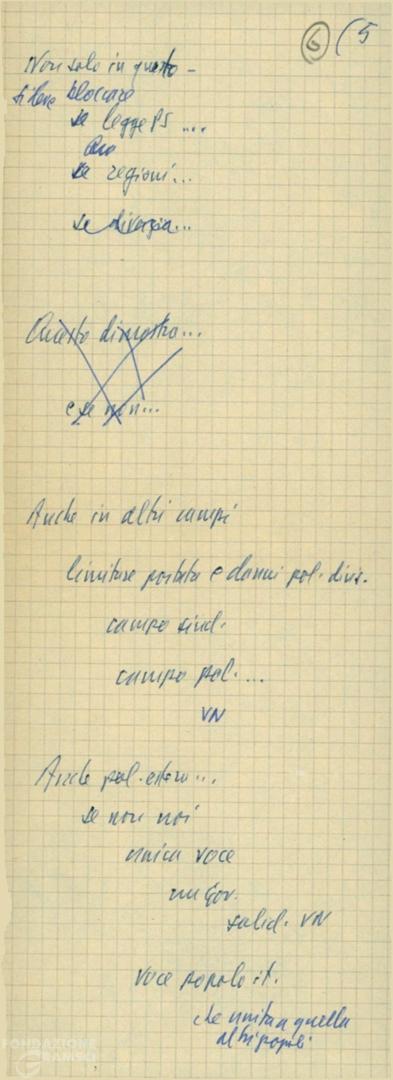 6 (5
Non solo in questo -
si deve bloccare
se legge PS ...
se regioni ...
se divorzio ...
Questo dimostra ...
e se non ...
Anche in altri campi
limitare portata e danni pol. divis.
campo sind.
campo pol. ...
VN
Anche pol. estera ...
se non noi
unica voce
solid. VN
voce popolo it.
che unita a quella
altri popoli
FONDAZIONE
GRAMSCI